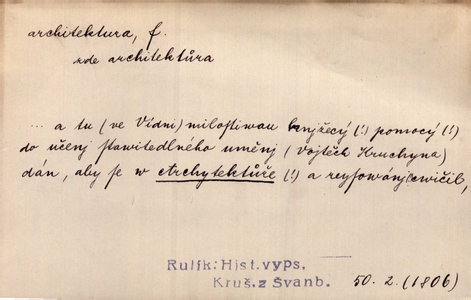 architektura, f.
zde architektůra
... a tu (ve Vídni) milostiwau knjžecý (!) pomocý (!)
do učenj stawitedlného uměnj (Vojtěch Kruchyna)
dán, aby se w Archytektůře (!) a reysowánj cwičil,
Rulík: Hist. vyps.
Kruš. z Švanb. 50. 2. (1806)